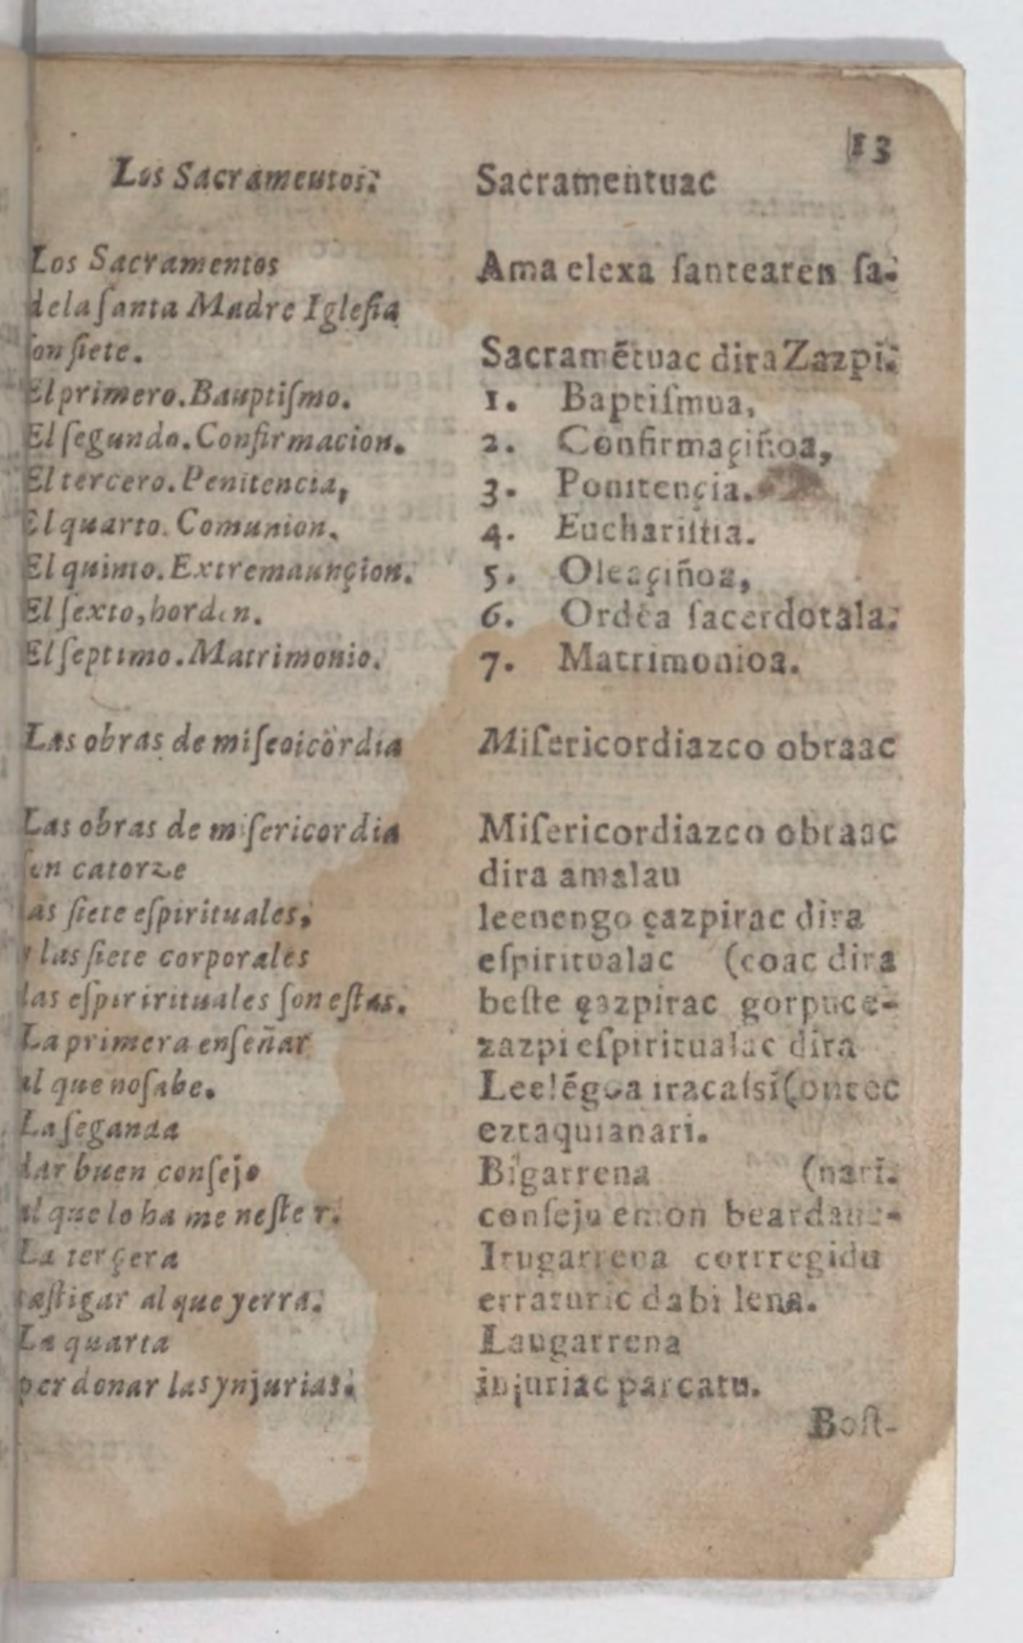 13
Los Sacrameutos:
Los Sacramentos
dela ſanta Madre Igleſia
ſon ſiete.
El primero. Bauptiſmo.
El ſegundo. Confirmacion.
El tercero. Penitencia,
El quarto. Comunion.
El quinto. Extremaunçion.
El ſexto, horden.
El ſeptimo. Matrimonio.
Las obras de miſeoicordia
Las obras de miſericordia
ſon catorze
las ſiete eſpirituales,
y las ſiete corporales
las eſpirirituales ſon eſtas.
La primera enſeñar
al que no ſabe.
La ſeganda
dar buen conſejo
al que lo ha me neſte r.
La terçera
caſtigar al que yerra.
La quarta
perdonar las ynjurias.
Sacramentuac
Ama elexa ſantearen ſa-
Sacramẽtuac dira Zazpi.
1. Baptiſmua,
2. Confirmaçiñoa,
3. Ponitençia.
4. Euchariſtia.
5. Oleaçiñoa,
6. Ordẽa ſacerdotala.
7. Matrimonioa.
Miſericordiazco obraac
Miſericordiazco obraac
dira amalau
leenengo çazpirac dira
eſpiritualac (coac dira
beſte çazpirac gorpuce-
zazpi eſpiritualac dira
iracaſsi (ontec
eztaquianari.
Bigarrena (nari.
conſeju emon
Irugarrena corrregidu
erraturic dabi lena.
Laugarrena
injuriac parcatu.
Boſt-